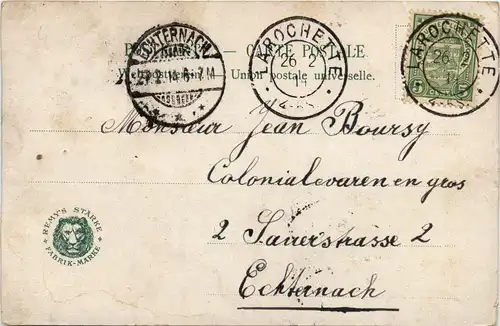 CARTE POSTALE
Weltpostverein. Union postale universelle.
ECHTERNACH
LAROCHETTE
26 2
14
LAROCHETTE
26
14
5
Monsieur Jean Boursy
Colonialwaren en gros
2 Sauerstrasse 2
Echternach
REMY'S STÄRKE
FABRIK-MARKE